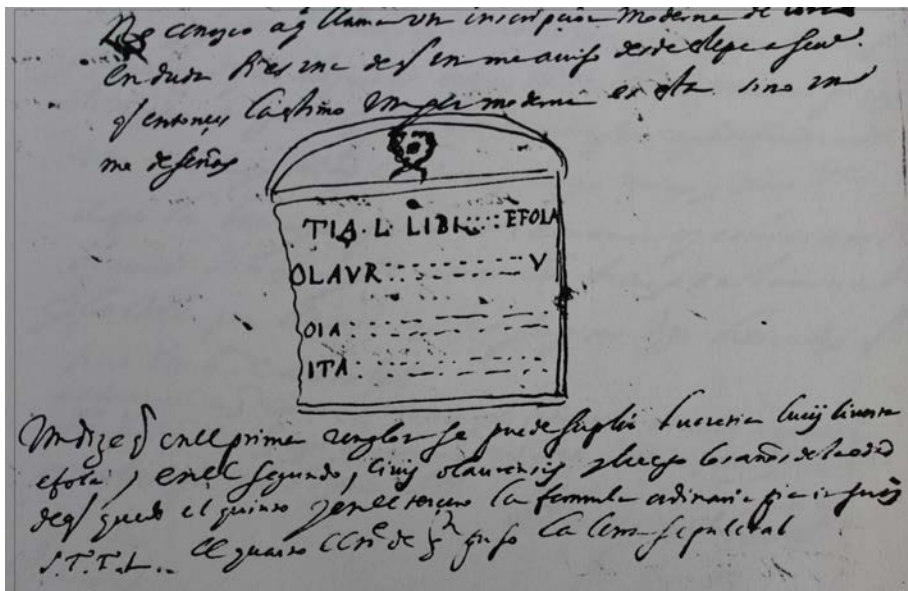 conozco a q llama vm inscripcion moderna de
en duda si es una de q vm me aviso desde elepe a
q entonces lastimo moderna es esta sino vm
me de señas
TIA. L. LIBI:::: EFOLA
OLAVR V
OIA
ITA
Vm dize q en el primer renglon se puede suplir Lucretia Lucij liverta
efola, en el segundo, civis olaurensis, y luego los años de la edad
de q quedo el quinto y en el tercero la formula ordinaria pia in suis
S.T.T.L. el quarto de puso sepulcral